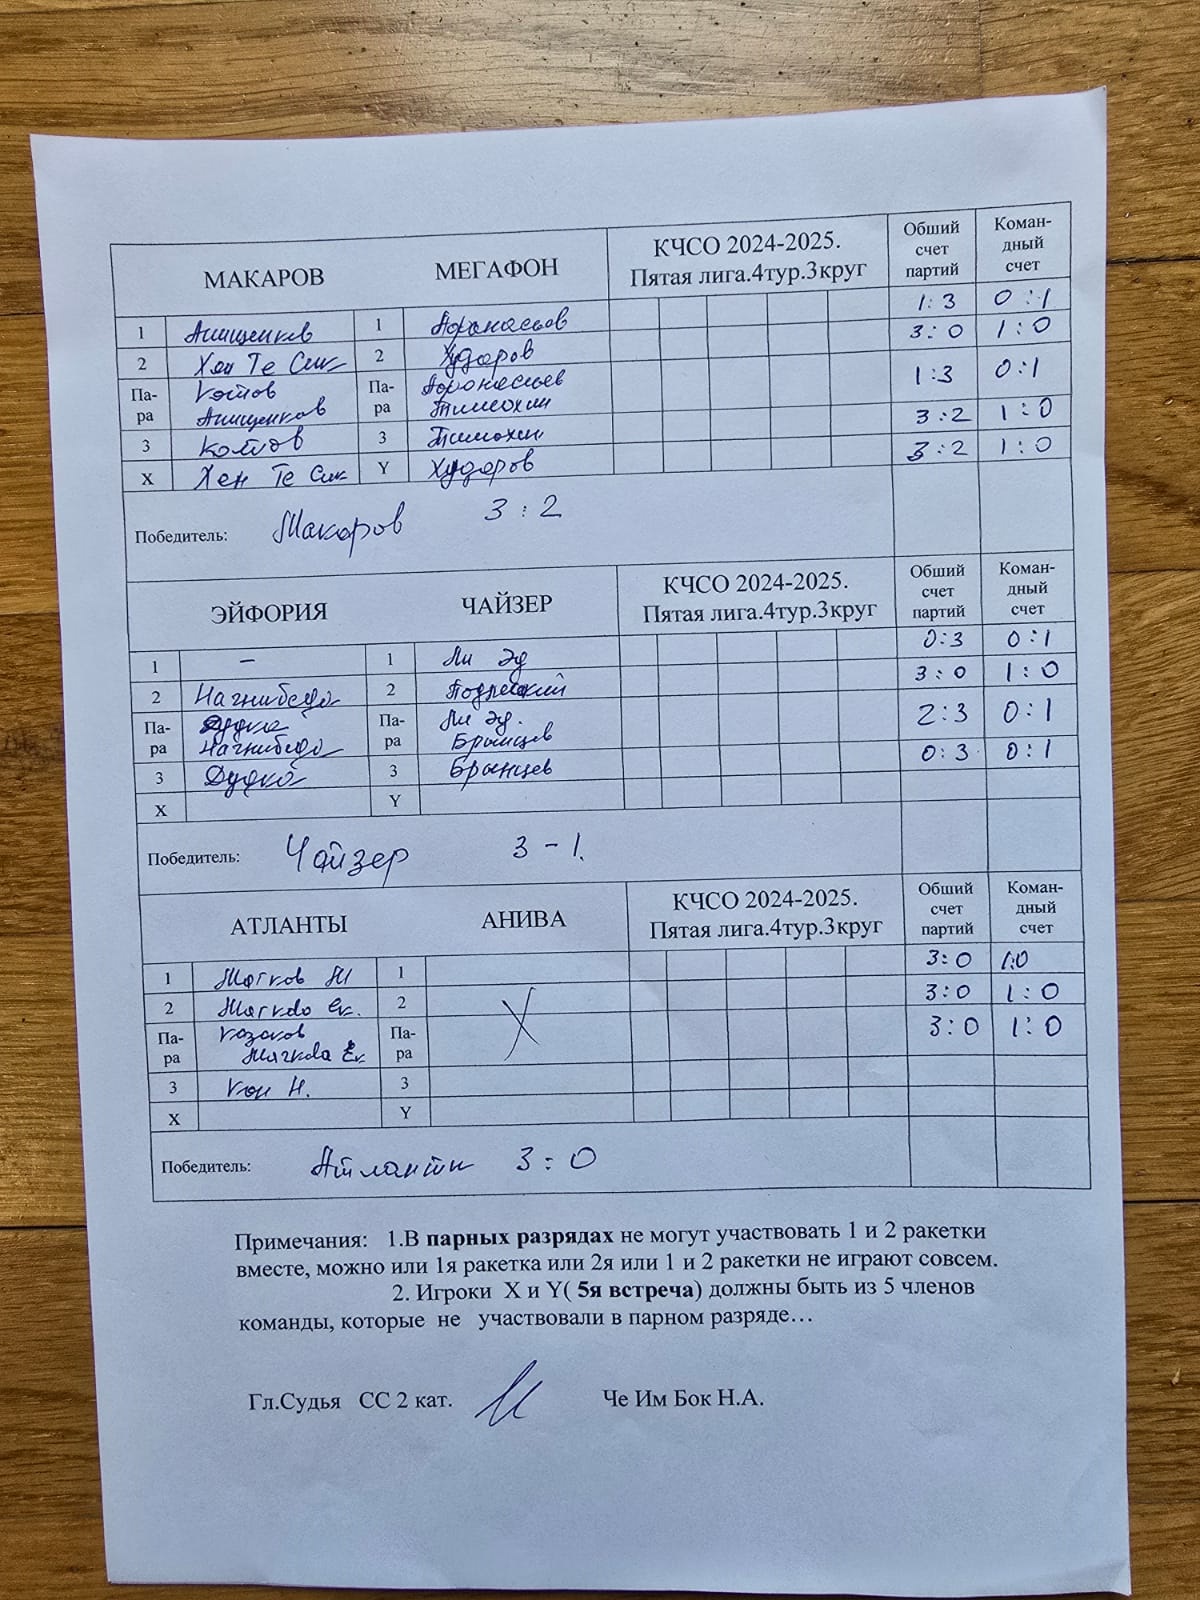 МАКАРОВ МЕГАФОН КЧСО 2024-2025. Пятая лига.4тур.3круг Обший счет партий Коман-дный счет
1 Анищенков 1 Афанасьев 1:3 0:1
2 Хен Те Сик 2 Худоров 3:0 1:0
Па-ра Котов Анищенков Па-ра Афонасьев Тимохин 1:3 0:1
3 Котов 3 Тимохин 3:2 1:0
X Хен Те Сик Y Худоров 3:2 1:0
Победитель: Макаров 3:2
ЭЙФОРИЯ ЧАЙЗЕР КЧСО 2024-2025. Пятая лига.4тур.3круг Обший счет партий Коман-дный счет
1 – 1 Ли Эд 0:3 0:1
2 Нагнибеда 2 3:0 1:0
Па-ра Дудко Нагнибеда Па-ра Ли Эд. Брынцев 2:3 0:1
3 Дудко 3 Брынцев 0:3 0:1
X Y
Победитель: Чайзер 3-1.
АТЛАНТЫ АНИВА КЧСО 2024-2025. Пятая лига.4тур.3круг Обший счет партий Коман-дный счет
1 Мягков М 1 3:0 1:0
2 Мягкова Ек. 2 3:0 1:0
Па-ра Казаков Мягкова Ек Па-ра 3:0 1:0
3 Кон Н. 3
X Y
Победитель: Атланты 3:0
Примечания: 1.В парных разрядах не могут участвовать 1 и 2 ракетки
вместе, можно или 1я ракетка или 2я или 1 и 2 ракетки не играют совсем.
2. Игроки X и Y( 5я встреча) должны быть из 5 членов
команды, которые не участвовали в парном разряде…
Гл.Судья СС 2 кат. Че Им Бок Н.А.